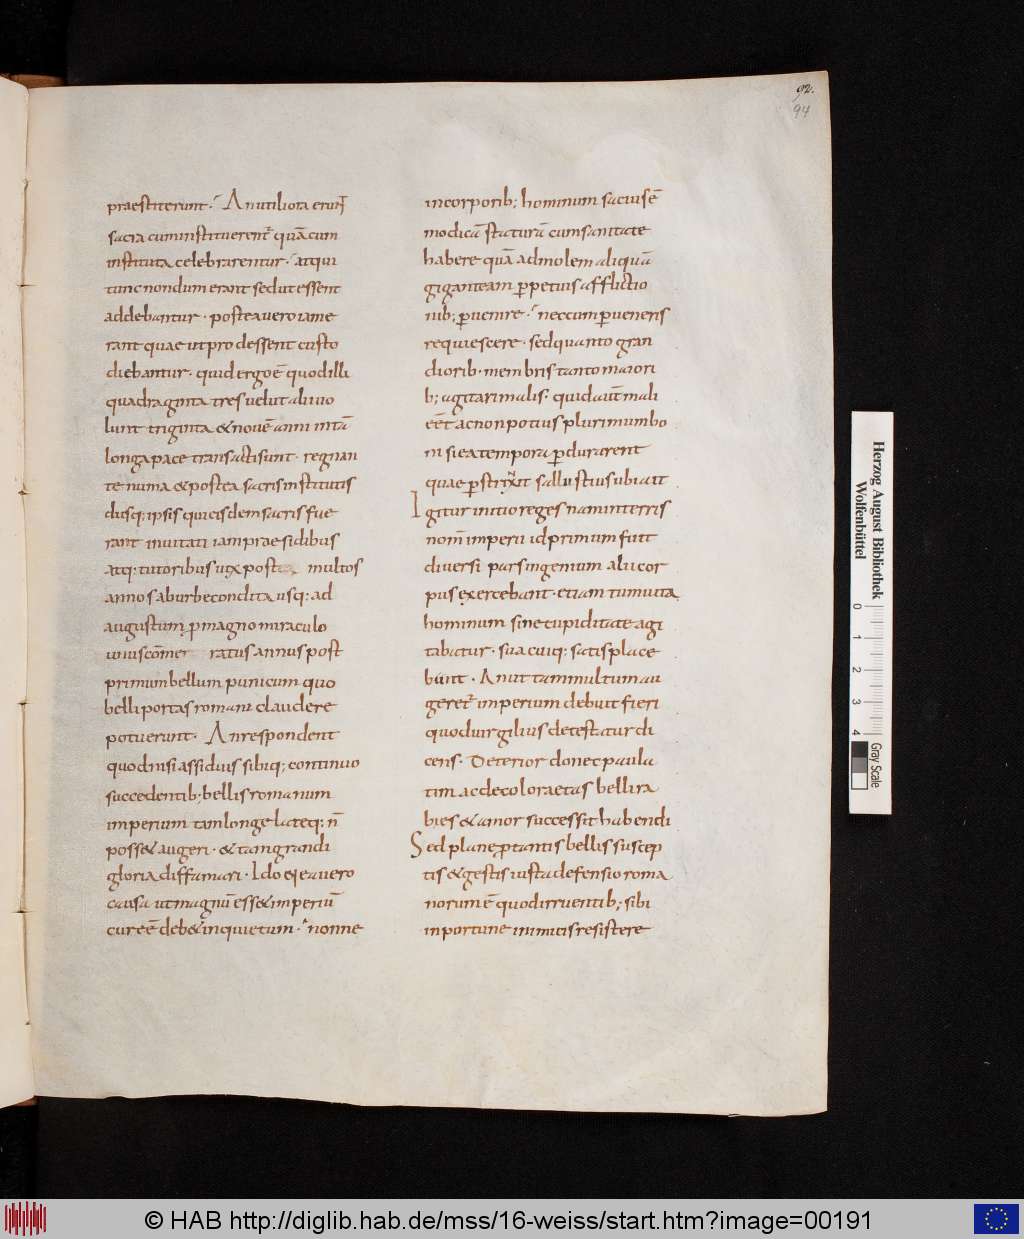 92.
94
praestiterunt· An utiliora erunt
sacra cum instituerent̃ quã cum
instituta celebrarentur· atqui
tunc nondum erant sed ut essent
addebantur· postea uero iam e
rant quae ut prodessent custo
diebantur· quid ergo ẽ quod illi
quadraginta tres uel ut alii uo
lunt triginta & nouẽ anni in tã
longa pace transacti sunt· regnan
te numa & postea sacris institutis
diisq; ipsis qui eisdem sacris fue
rant inuitati iam praesidibus
atq; tutoribus uix post multos
annos ab urbe condita usq; ad
augustum p̱ magno miraculo
unus cõmemoratus annus post
primum bellum punicum quo
belli portas romani claudere
potuerunt· An respondent
quod nisi assiduis sibiq; continuo
succedentib; bellis romanum
imperium tam longe lateq; ñ
poss& augeri· & tam grandi
gloria diffamari· Idoṇea uero
causa ut magnũ ess& imperiũ
cur eẽ deb& inquietum· nonne
in corporib; hominum satius ẽ
modicã staturã cum sanitate
habere quã ad molem aliquã
giganteam p̱petuis afflictio
nib; p̱uenire· nec cum p̱ueneris
requiescere· sed quanto gran
diorib· membris tanto maiori
b; agitari malis· quid aut̃ mali
eẽt ac non potius plurimum bo
ni si ea tempora p̱durarent
quae p̱strinxit sallustius ubi ait
Igitur initio reges nam in terris
nom̃ imperii id primum fuit
diuersi pars ingenium alii cor
pus exercebant· etiam tum uita
hominum sine cupiditate agi
tabatur· sua cuiq; satis place
bant· An ut tam multum au
geret̃ imperium debuit fieri
quod uirgilius detestatur di
cens· Deterior donec paula
tim ac decolor aetas belli ra
bies & amor successit habendi
Sed plane p̱ tantis bellis suscep
tis & gestis iusta defensio roma
norum ẽ quod irruentib; sibi
inportune inimicis resistere
Herzog August Bibliothek
Wolfenbüttel
0 1 2 3 4
Gray Scale
© HAB http://diglib.hab.de/mss/16-weiss/start.htm?image=00191